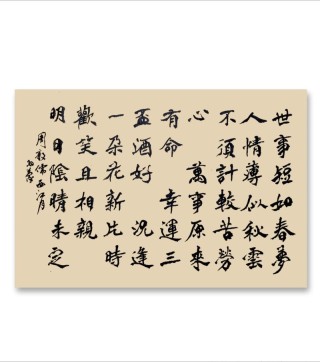 世事短如春夢
人情薄似秋雲
不須計較苦勞
心 萬事原來
有命 幸運三
盃酒好 況逢
一朵花新比時
歡笑且相親
明日陰晴未定
周敦儒西江月